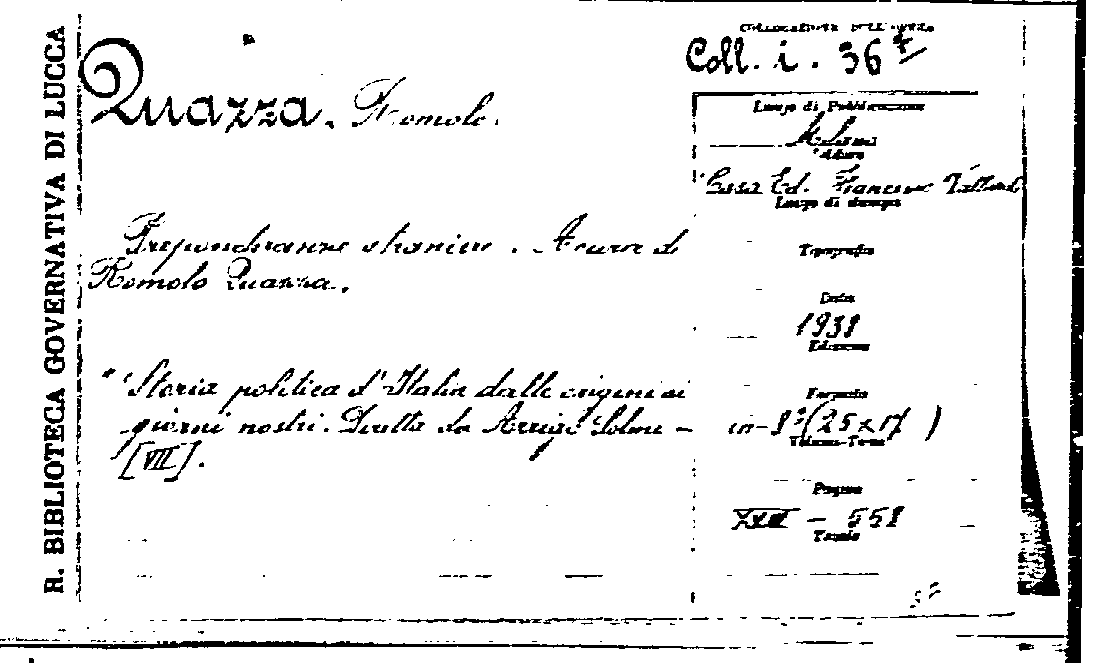 R. BIBLIOTECA GOVERNATIVA DI LUCCA
COLLOCAZIONE DELL'OPERA
Coll. i. 36
Quazza, Romolo.
Luogo di Pubblicazione
Milano
Editore
Casa Ed. Francesco Vallardi
Luogo di stampa
Preponderanze straniere. A cura di
Romolo Quazza.
Tipografia
Data
1938
Edizione
"Storia politica d'Italia dalle origini ai
giorni nostri. Diretta da Arrigo Solmi -
[VII].
Formato
in-8° (25x17)
Volume-Tomo
Pagine
- 558
Tavole